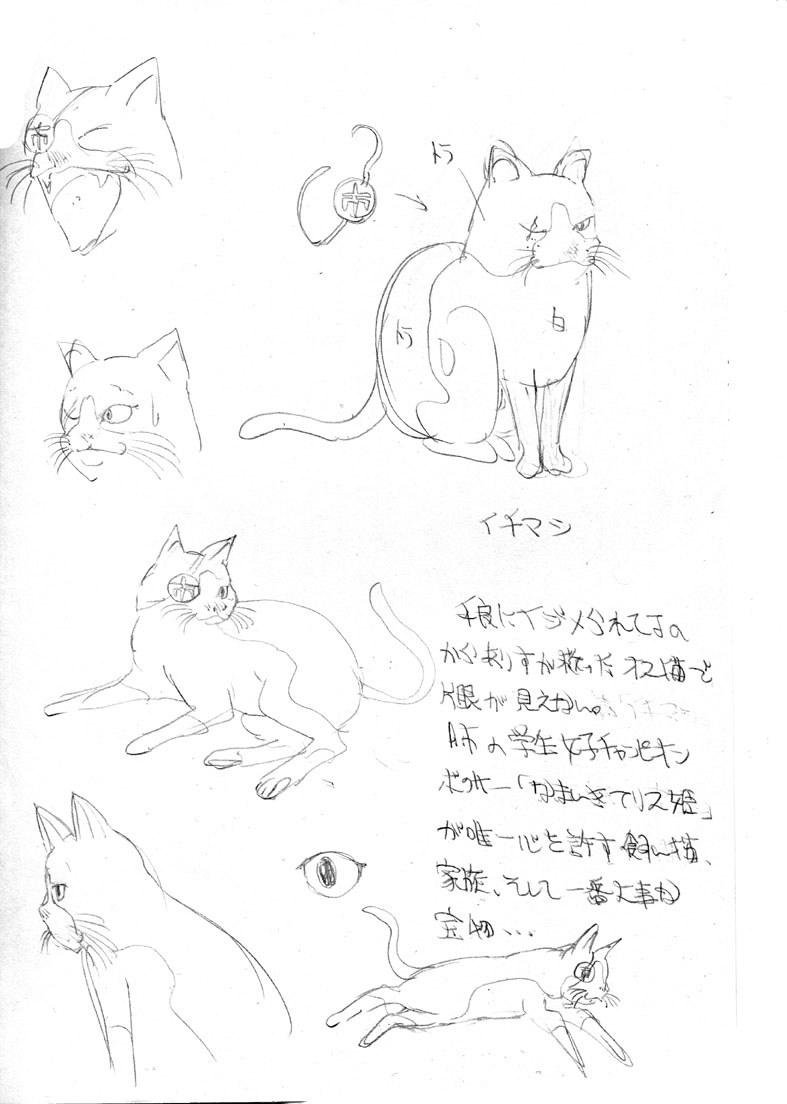 市
市
トラ
トラ
白
イチマツ
市
不良にイジメられてるの
からありすが救ったオス猫で
片眼が見えない。
A市の学生女子チャンピオン
ボクサー「なまいきアリス姫」
が唯一心を許す飼い猫、
家族、そして一番大事な
宝物、、、